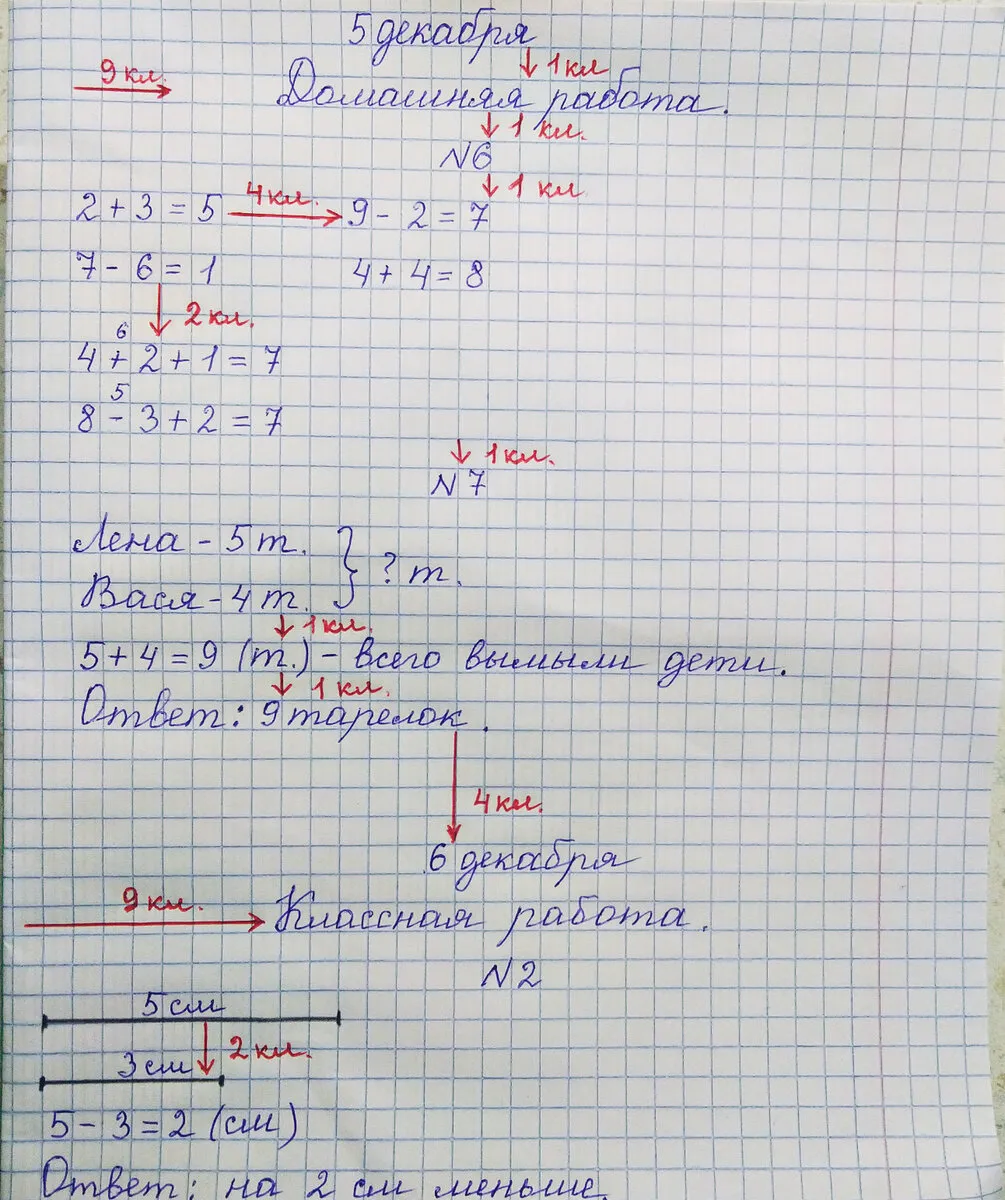 5 декабря
↓ 1 кл
9 кл. Домашняя работа.
↓ 1 кл.
№6
↓ 1 кл
2 + 3 = 5 4 кл. 9 - 2 = 7
7 - 6 = 1 4 + 4 = 8
↓ 2 кл.
6
4 + 2 + 1 = 7
5
8 - 3 + 2 = 7
↓ 1 кл.
№7
Лена - 5 т.
} ? т.
Вася - 4 т.
↓ 1 кл.
5 + 4 = 9 (т.) - всего вымыли дети.
↓ 1 кл.
Ответ: 9 тарелок.
4 кл.
6 декабря
9 кл. Классная работа.
№2
5 см
2 кл.
3 см
5 - 3 = 2 (см)
Ответ: на 2 см меньше.